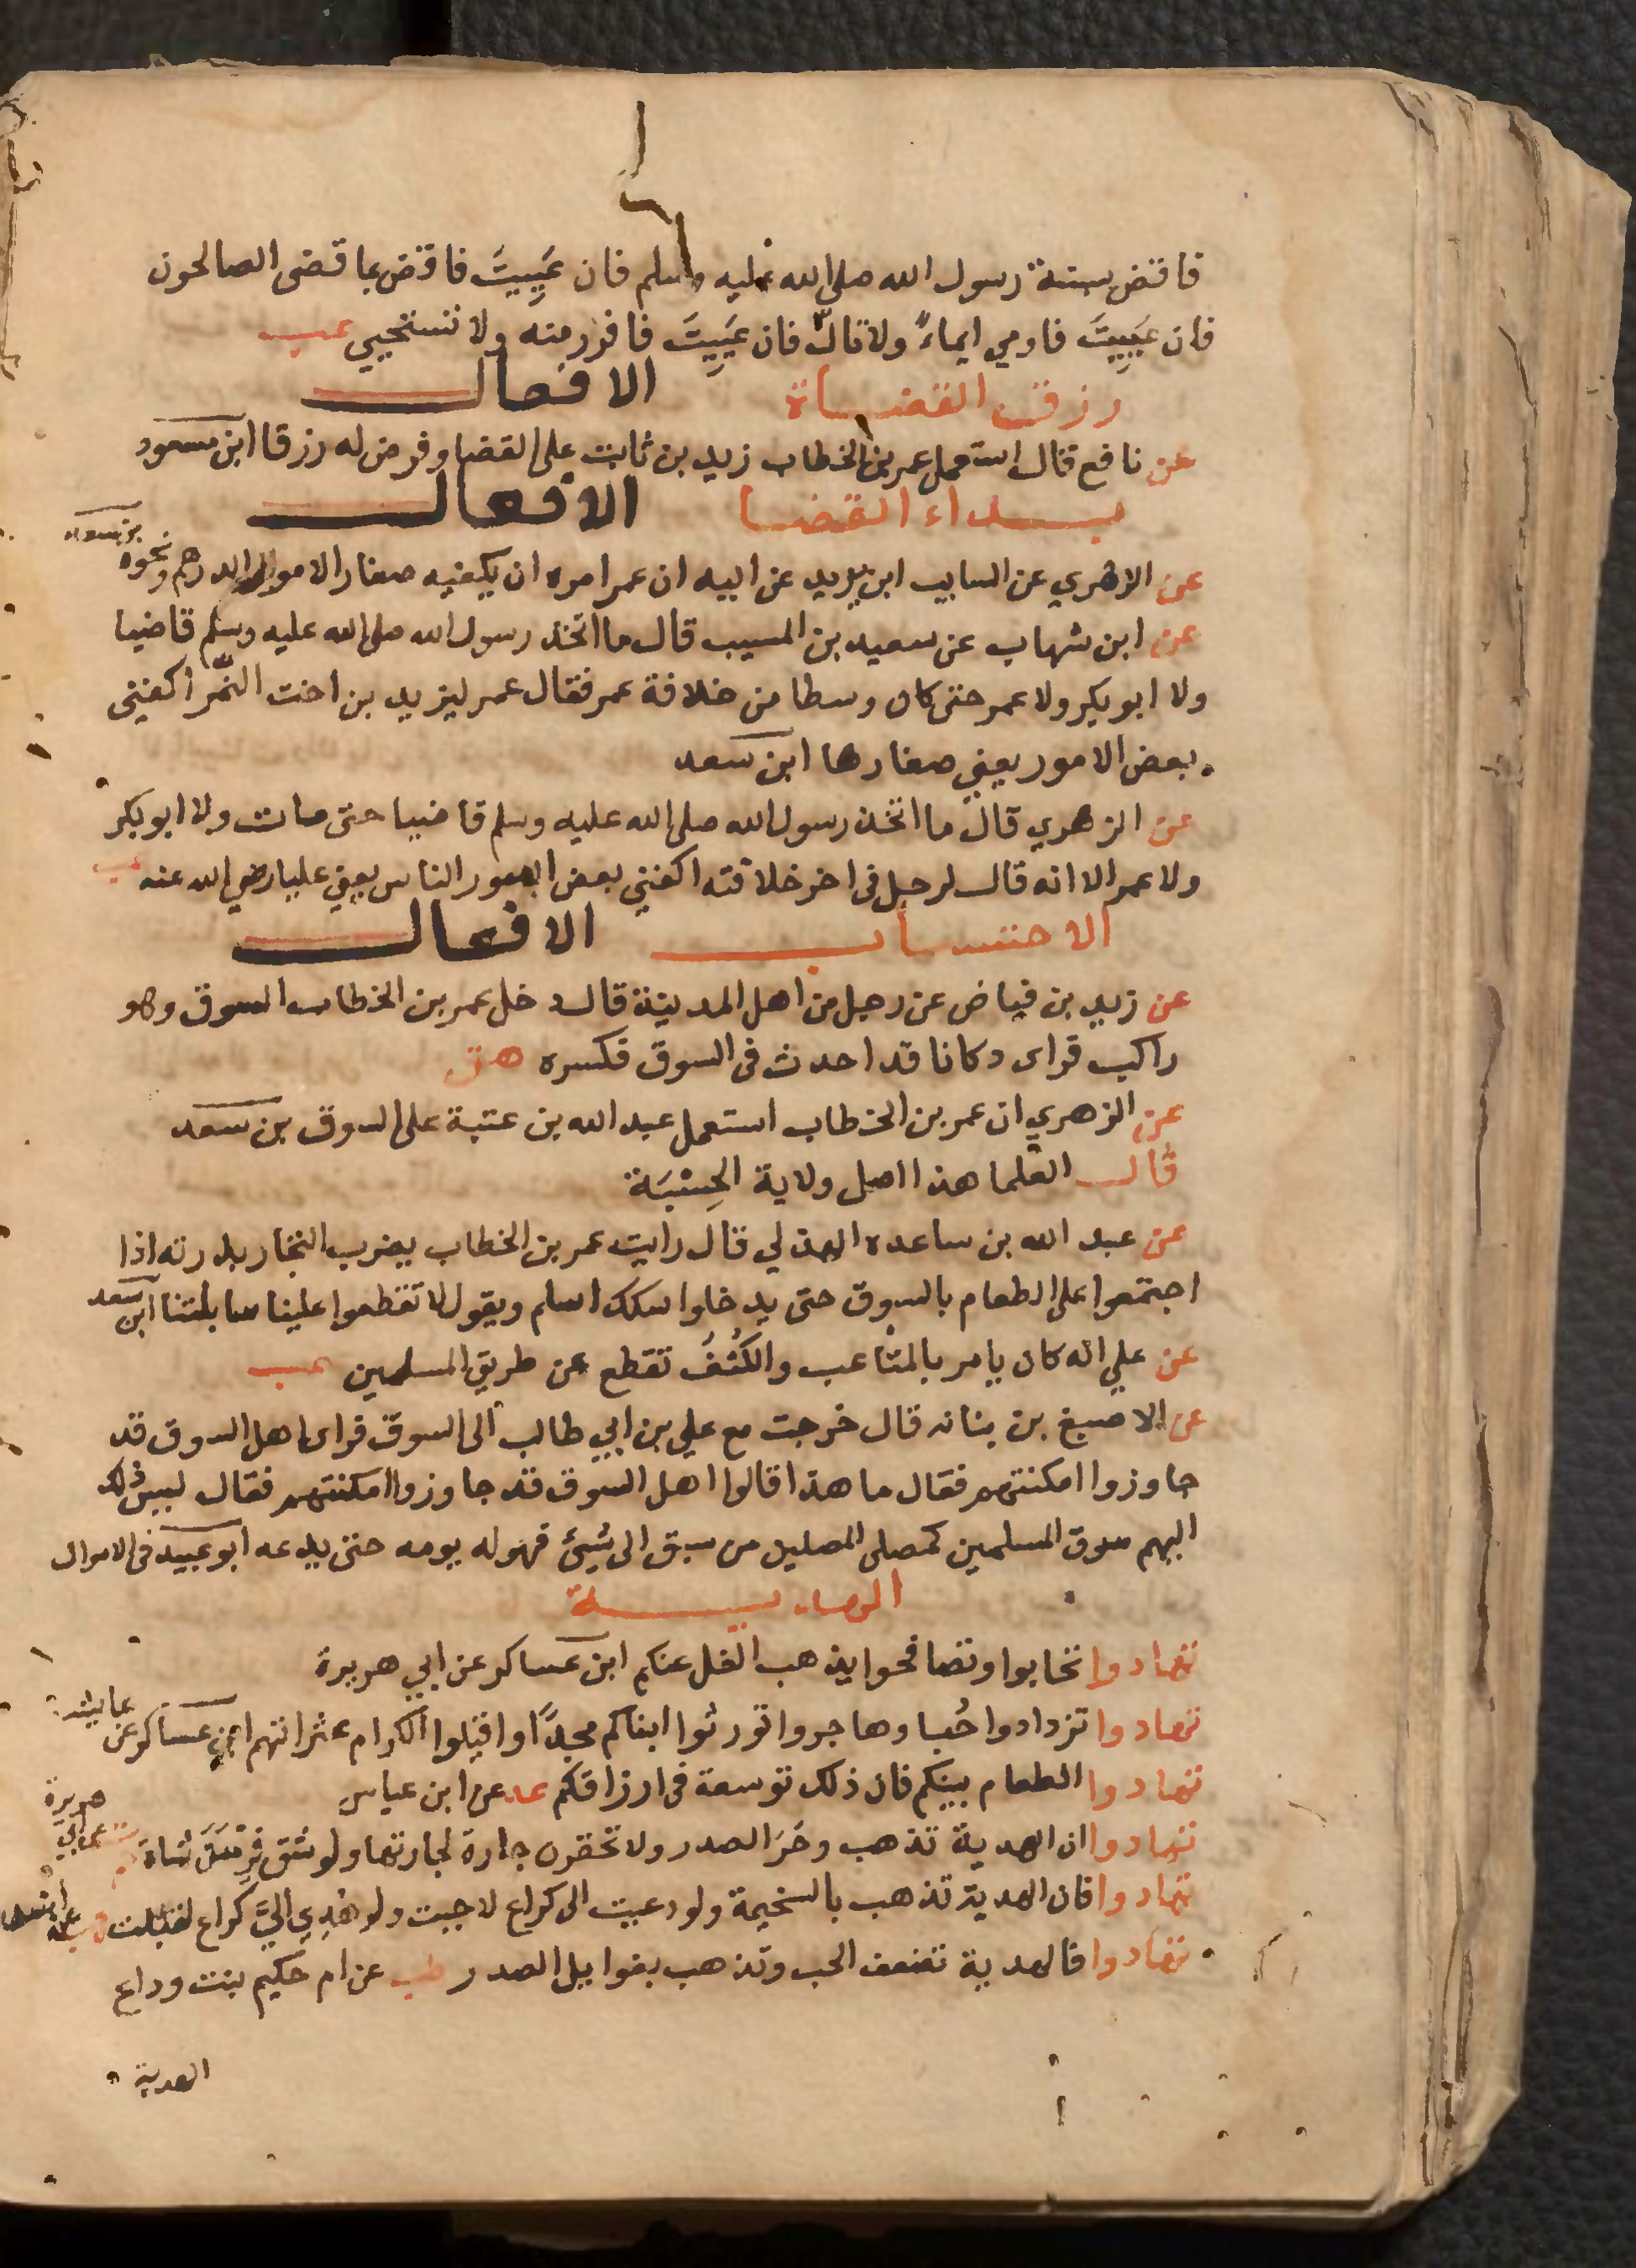 فاقض بسنة رسول الله صلى الله عليه وسلم فان عَيِيتَ فاقض بما قضى الصالحون
فان عَيِيتَ فاومي ايماءً ولا تالُ فان عَيِيتَ فافرر منه ولا تستحيي عب
رزق القضاة الافعال
عن نافع قال استعمل عمر بن الخطاب زيد بن ثابت على القضا وفرض له رزقا ابن سعود
بداء القضا الافعال
عن الزهري عن السايب ابن يزيد عن ابيه ان عمر امره ان يكفيه صغار الاموال الدرهم ونحوه بن سعد
عن ابن شهاب عن سعيد بن المسيب قال ما اتخذ رسول الله صلى الله عليه وسلم قاضيا
ولا ابو بكر ولا عمر حتى كان وسطا من خلافة عمر فقال عمر ليزيد بن اخت النَّمر اكفيني
بعض الامور يعني صغارها ابن سعد
عن الزهري قال ما اتخذ رسول الله صلى الله عليه وسلم قاضيا حتى مات ولا ابو بكر
ولا عمر الا انه قال لرجل فى اخر خلافته اكفني بعض امور الناس يعني عليا رضي الله عنه عب
الاحتساب الافعال
عن زيد بن فياض عن رجل من اهل المدينة قال دخل عمر بن الخطاب السوق وهو
راكب فراى دكانا قد احدث فى السوق فكسره هق
عن الزهري ان عمر بن الخطاب استعمل عبد الله بن عتبة على السوق بن سعد
قال العلما هذا اصل ولاية الحِسْبَة
عن عبد الله بن ساعده الهذلي قال رايت عمر بن الخطاب يضرب التجار بدرته اذا
اجتمعوا على الطعام بالسوق حتى يدخلوا سكك اسلم ويقول لا تقطعوا علينا سابلتنا ابن سعد
عن علي انه كان يامر بالمثاعب والكُنُفُ تقطع عن طريق المسلمين عب
عن الاصبغ بن بنانه قال خرجت مع علي بن ابي طالب الى السوق فراى اهل السوق قد
جاوزوا امكنتهم فقال ما هذا قالوا اهل السوق قد جاوزوا امكنتهم فقال ليس ذلك
اليهم سوق المسلمين كمصلى المصلين من سبق الى شيئ فهو له يومه حتى يدعه ابو عبيد فى الاموال
الهدية
تهادوا تحابوا وتصافحوا يذهب الغل عنكم ابن عساكر عن ابي هريرة
تهادوا تزدادوا حُبا وهاجروا تورثوا ابناكم مجدًا واقيلوا الكرام عثراتهم ابن عساكر عن عايشه
تهادوا الطعام بينكم فان ذلك توسعة فى ارزاقكم عد عن ابن عباس
تهادوا ان الهدية تذهب وحَرَ الصدر ولا تحقرن جارة لجارتها ولو شق فِرْسَن شاة عن ابي هريرة
تهادوا فان الهدية تذهب بالسخيمة ولو دعيت الى كراع لاجبت ولو اُهْدِي اليَّ كراع لقبلت
تهادوا فالهدية تضعف الحب وتذهب بغوايل الصدر طب عن ام حكيم بنت وداع
الهدية